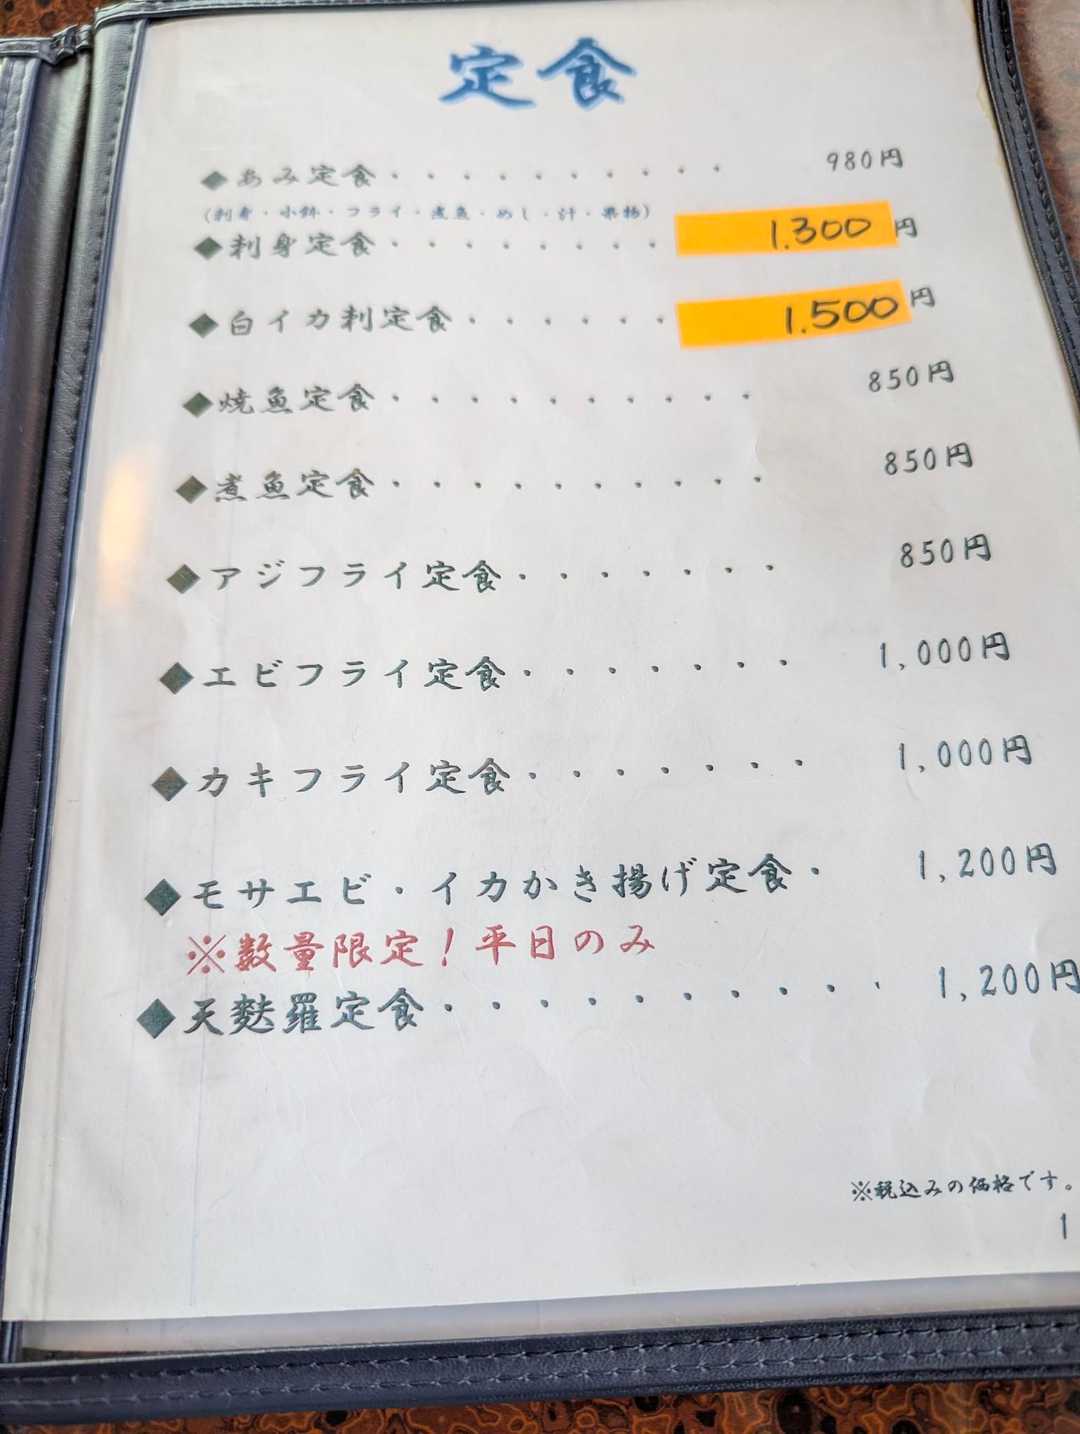 定食
◆あみ定食・・・・・・・・・・ 980円
(刺身・小鉢・フライ・煮魚・めし・汁・果物)
◆刺身定食・・・・・・・・ 1.300円
◆白イカ刺定食・・・・・・ 1.500円
◆焼魚定食・・・・・・・・・・ 850円
◆煮魚定食・・・・・・・・・・ 850円
◆アジフライ定食・・・・・・・ 850円
◆エビフライ定食・・・・・・・ 1,000円
◆カキフライ定食・・・・・・・ 1,000円
◆モサエビ・イカかき揚げ定食・ 1,200円
※数量限定!平日のみ
◆天麩羅定食・・・・・・・・・・・ 1,200円
※税込みの価格です。
1